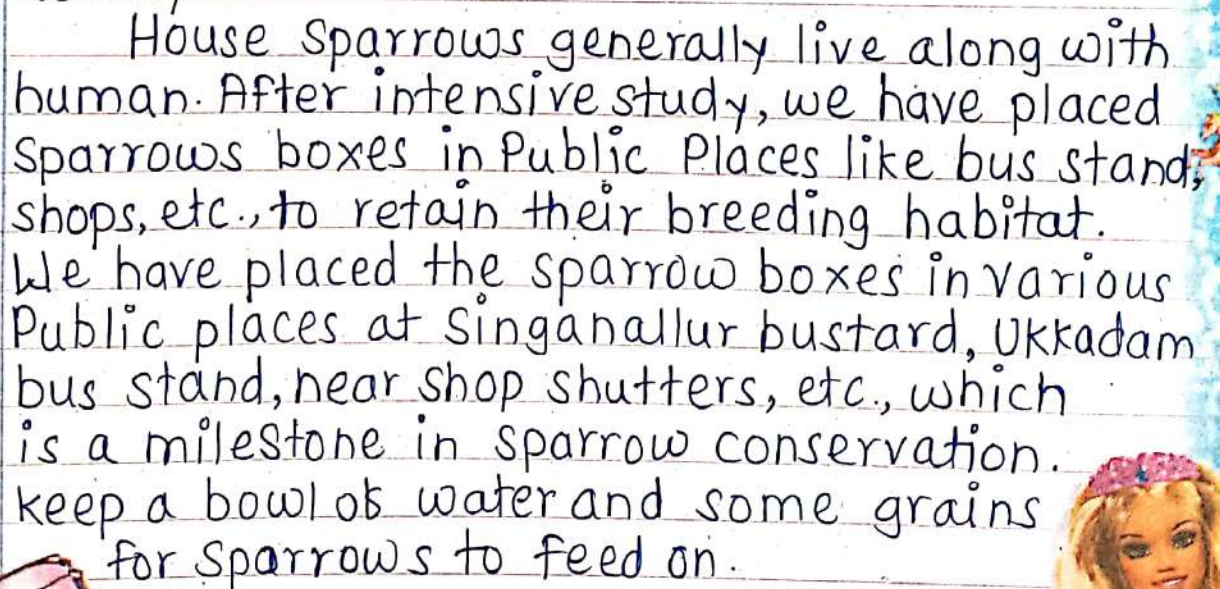 House Sparrows generally live along with
human. After intensive study, we have placed
Sparrows boxes in Public Places like bus stand,
shops, etc., to retain their breeding habitat.
We have placed the sparrow boxes in various
Public places at Singanallur bustard, Ukkadam
bus stand, near shop shutters, etc., which
is a milestone in sparrow conservation.
keep a bowl of water and some grains
for Sparrows to feed on.